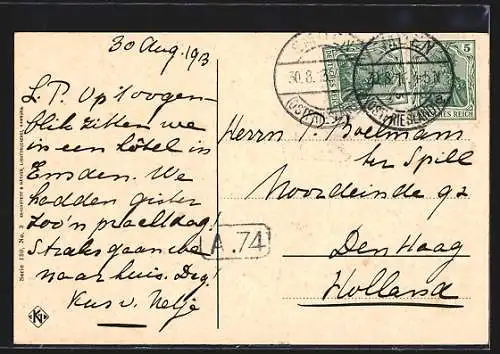 30 Aug. 1913
L. P. Op 't oogen-
blik zitten we
in een hôtel in
Emden. We
hadden gister
zoo'n prachtdag!
Straks gaan we
naar huis. Dag!
Kus v. Nelje
Herrn P. Boelmans
ter Spill
Noordeinde 92
Den Haag
Holland
EMDEN
30.8.13
(OSTFRIESLAND)
5
DEUTSCHES REICH
A.74
Serie 139, No. 3